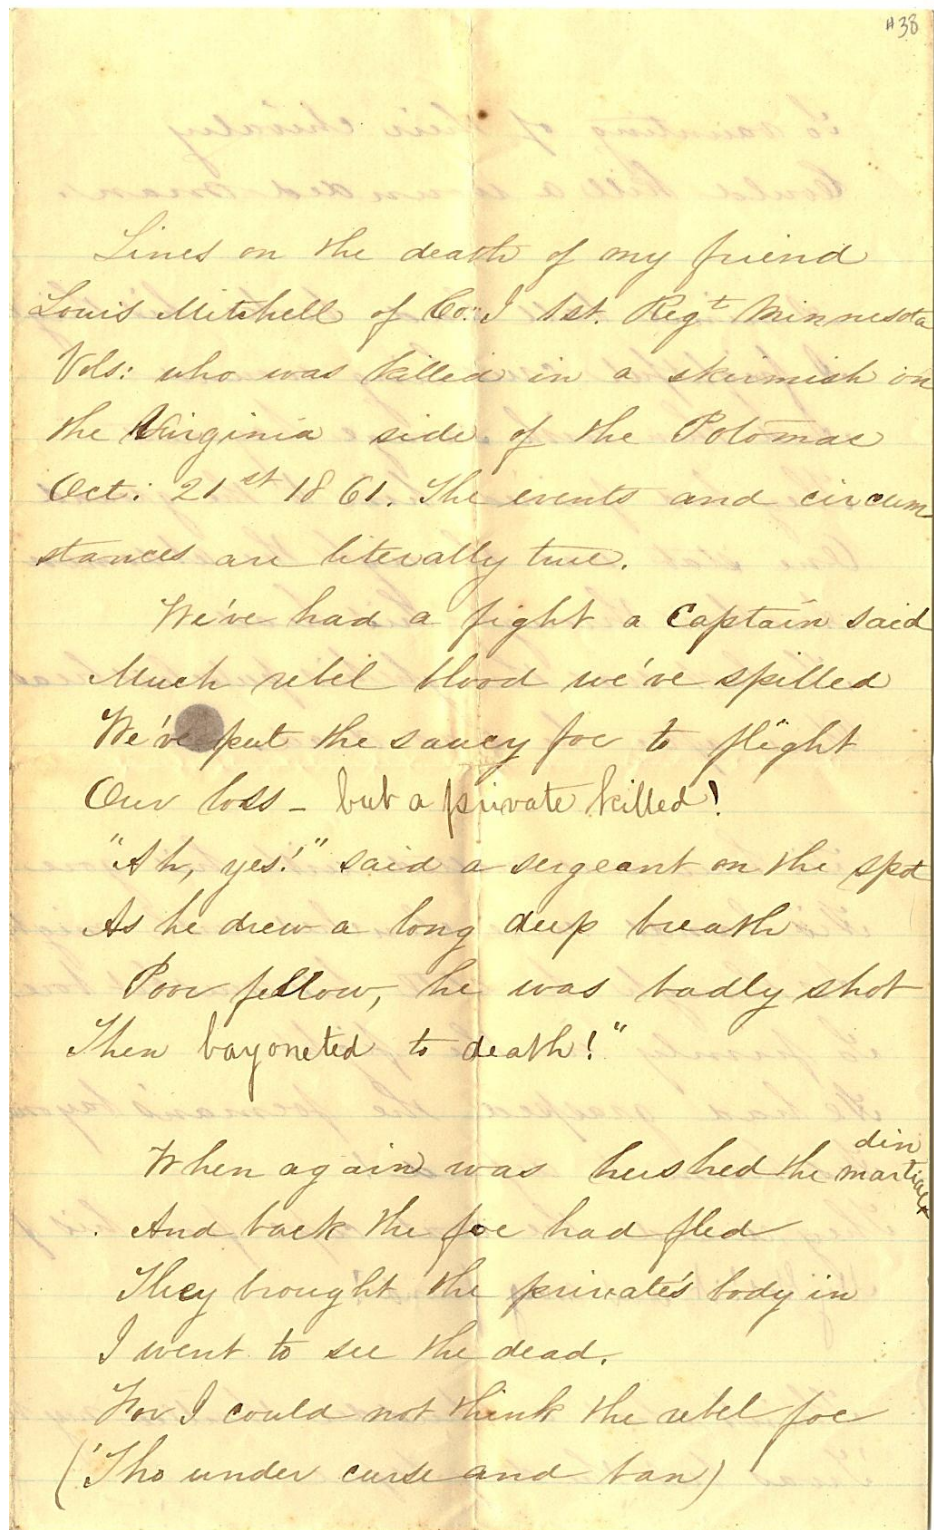 #38
Lines on the death of my friend
Louis Mitchell of Co: I 1st. Regt Minnesota
Vols: who was killed in a skirmish on
the Virginia side of the Potomac
Oct: 21st 1861. The events and circum-
stances are literally true.
We've had a fight a Captain said
Much rebel blood we've spilled
We've put the saucy foe to flight
Our loss – but a private killed!
"Ah, yes!" said a sergeant on the spot
As he drew a long deep breath
Poor fellow, he was badly shot
Then bayoneted to death!"
When again was hushed the martial din
And back the foe had fled
They brought the private's body in
I went to see the dead.
For I could not think the rebel foe
('Tho under curse and ban)